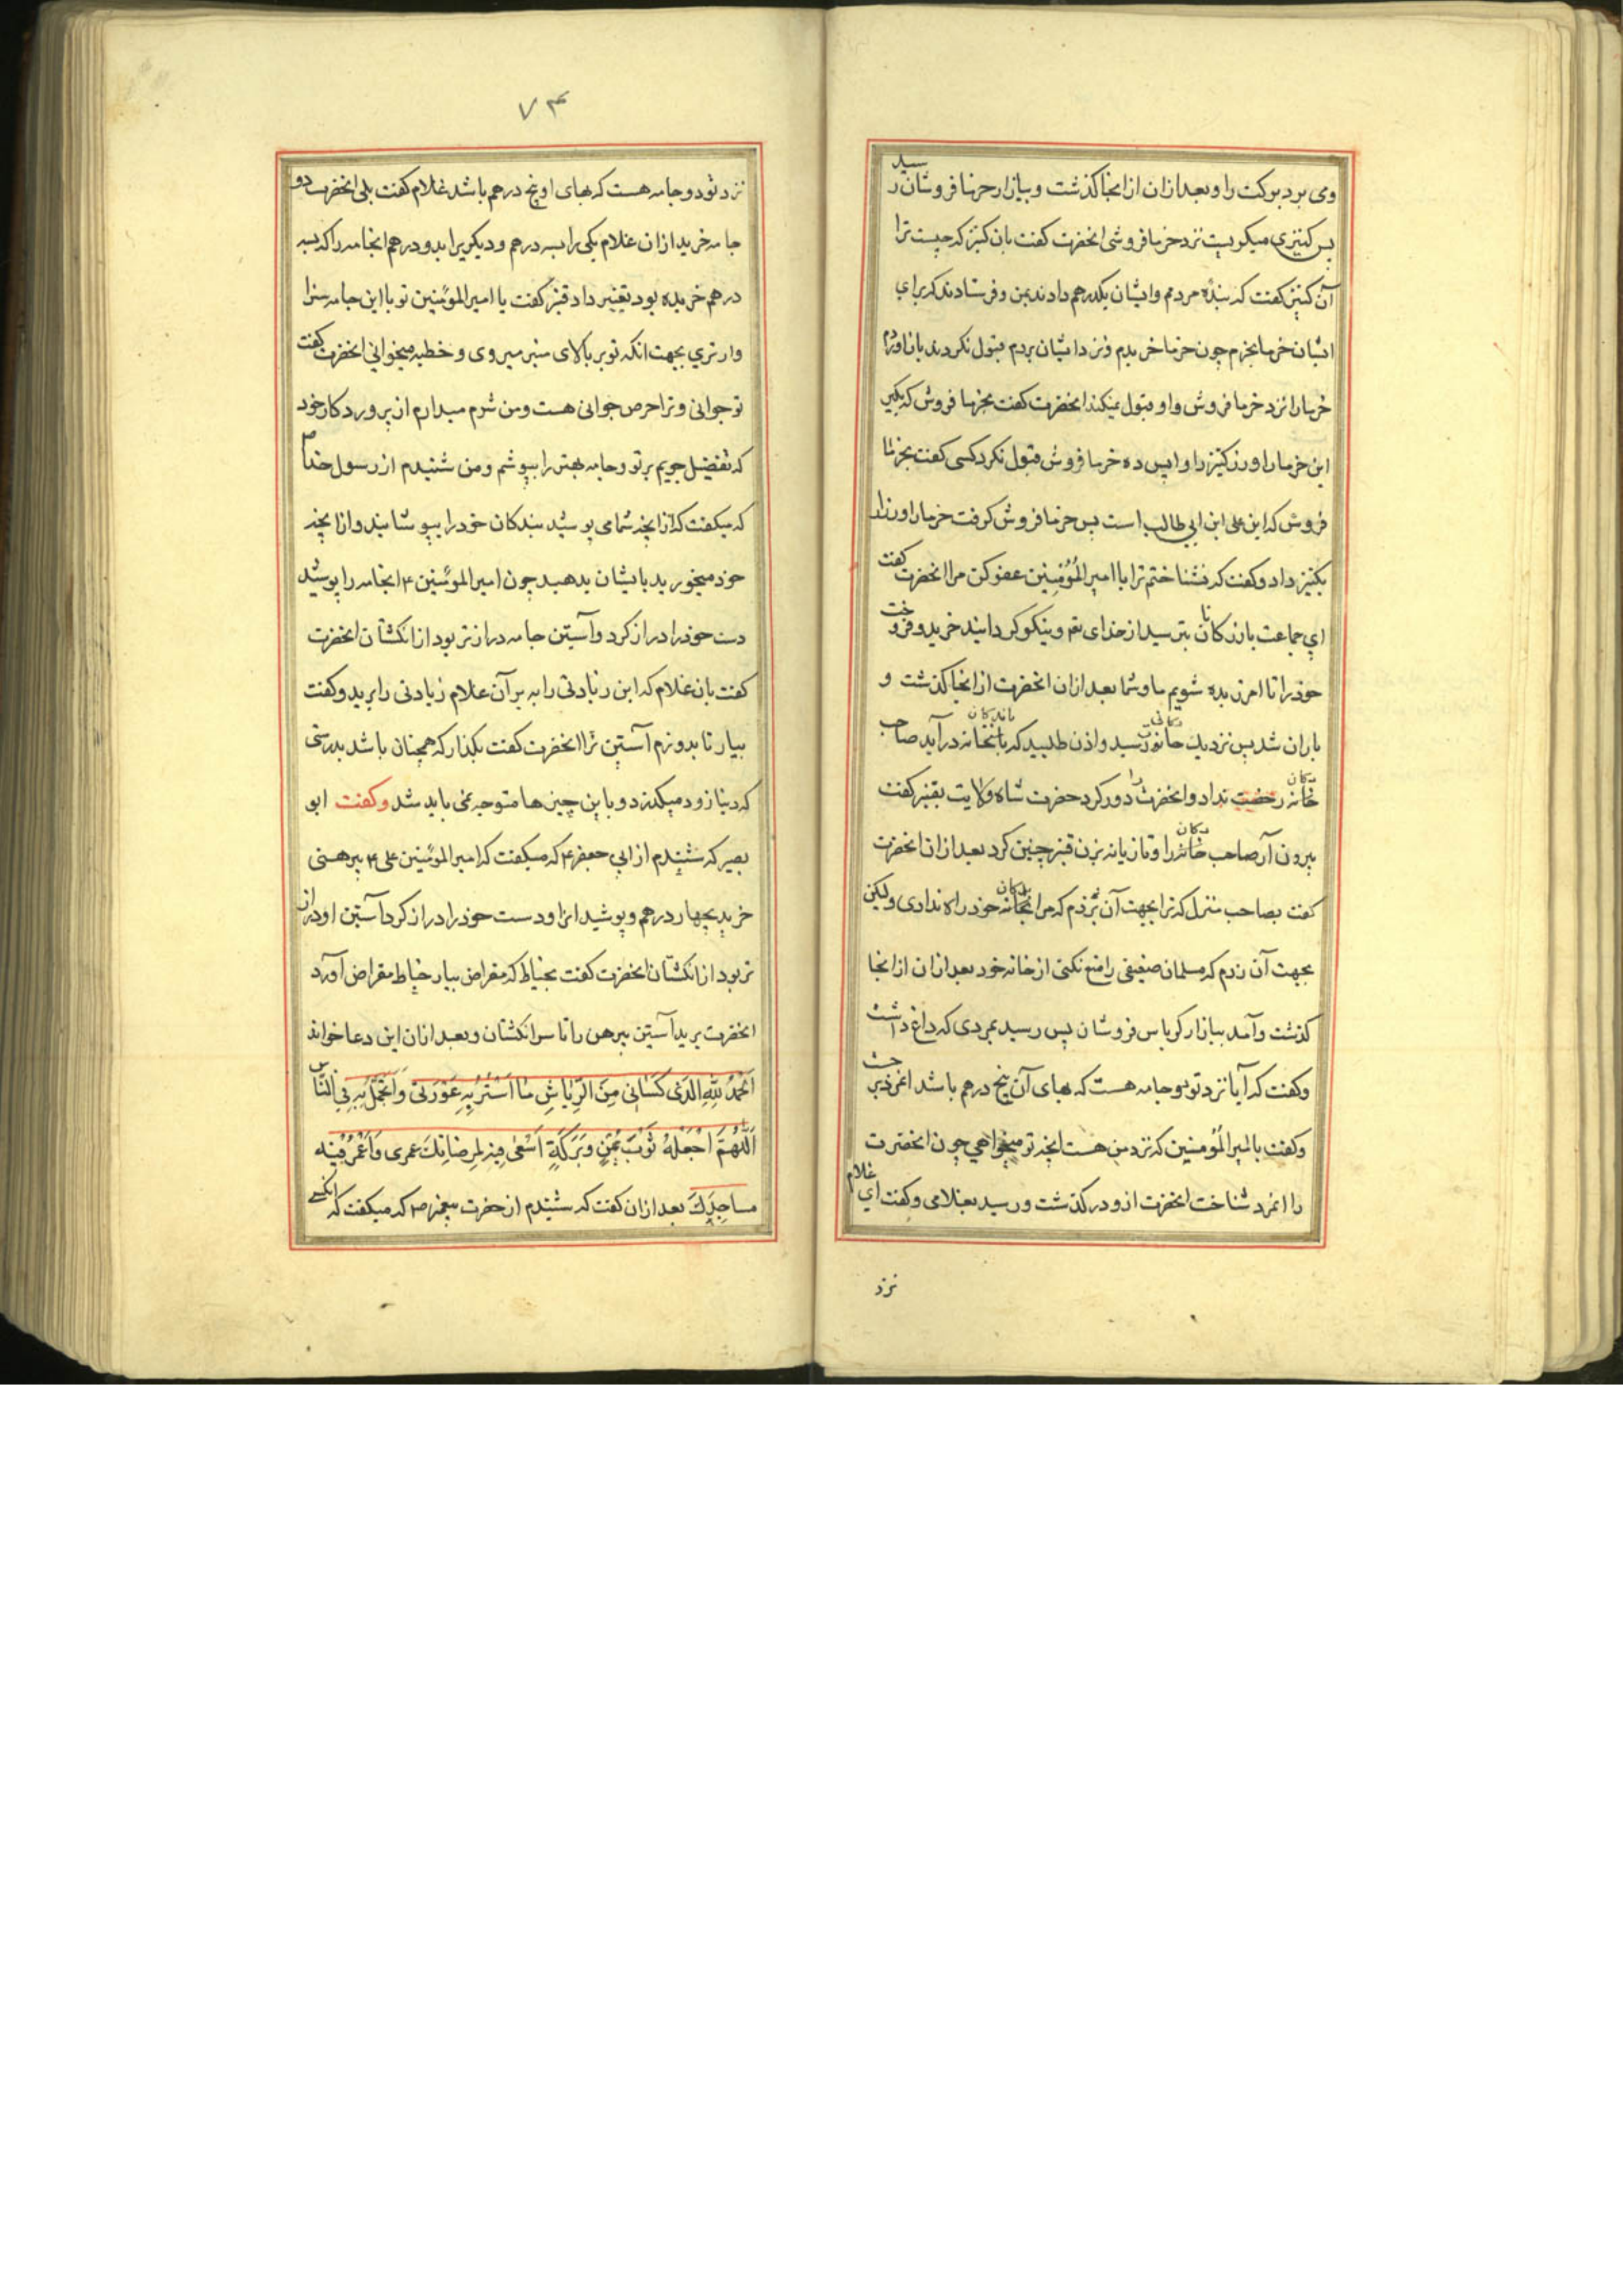 وی برد برکت را و بعد ازان از انجا گذشت و ببازار خرما فروشان رسید
پس کنیزی میگریست نزد خرما فروشی انحضرت گفت بان کنیز که چیست ترا
آن کنیز گفت که بندۀ مردمم وایشان یکدرهم دادند بمن و فرستادند که برای
ایشان خرما بخرم چون خرما خریدم و نزد ایشان بردم قبول نکردند باز اوردم
خرما را نزد خرما فروش و او قبول نمیکند انحضرت گفت بخرما فروش که بگیر
این خرما را و زر کنیز را واپس ده خرما فروش قبول نکرد کسی گفت بخرما
فروش که این علی ابن ابی طالب است پس خرما فروش گرفت خرما را و زر را
بکنیز داد و گفت که نشناختم ترا یا امیر المؤمنین عفو کن مرا انحضرت گفت
ای جماعت بازرکانان بترسید از خدای تع و نیکو گردانید خرید و فروخت
خود را تا امرزیده شویم ما و شما بعد ازان انحضرت از انجا گذشت و
باران شد پس نزدیک خانۀ دکانی رسید و اذن طلبید که باندکان بانخانه در آید صاحب
خانه دکان رخصت نداد و انحضرت را دور کرد حضرت شاه ولایت بقنبر گفت
بیرون آر صاحب خانه دکان را و تازیانه بزن قنبر چنین کرد بعد ازان انحضرت
گفت بصاحب منزل که ترا بجهت آن نزدم که مرا بخانه بدکان خود راه ندادی ولیکن
بجهت آن زدم که مسلمان ضعیفی را منع نکنی از خانه خود بعد ازان از انجا
گذشت و آمد ببازار کرباس فروشان پس رسید بمردی که داغ داشت
و گفت که آیا نزد تو دو جامه هست که بهای آن پنج درهم باشد انمرد جست
و گفت یا امیر المؤمنین که نزد من هست انچه تو میخواهی چون انحضرت
را انمرد شناخت انحضرت ازو در گذشت و رسید بغلامی و گفت ای غلام
نزد
۷۴
نزد تو دو جامه هست که بهای او پنج درهم باشد غلام گفت بلی انحضرت دو
جامه خرید ازان غلام یکی را بسه درهم و دیکریرا بدو درهم انجامه را که بسه
درهم خریده بود بقنبر داد قنبر گفت یا امیر المؤمنین تو با این جامه سزا
وارتری بجهت انکه تو بر بالای منبر میروی و خطبه میخوانی انحضرت گفت
تو جوانی و ترا حرص جوانی هست و من شرم میدارم از پروردکار خود
که تفضیل جویم بر تو و جامه بهتر را بپوشم و من شنیدم از رسول خدا ص
که میگفت که از انچه شما می پوشید بندکان خود را بپوشانید و از انچه
خود میخورید بایشان بدهید چون امیر المؤمنین ۴ انجامه را پوشید
دست خود را دراز کرد و آستین جامه درازتر بود از انکشتان انحضرت
گفت بان غلام که این زیادتی را ببر آن غلام زیادتی را برید و گفت
بیار تا بدوزم آستین ترا انحضرت گفت بگذار که همچنان باشد بدرستی
که دنیا زود میگذرد و باین چیزها متوجه نمی باید شد و گفت ابو
بصیر که شنیدم از ابی جعفر ۴ که میگفت که امیر المؤمنین علی ۴ پیرهنی
خرید بچهار درهم و پوشید انرا و دست خود را دراز کرد آستین او دراز
تر بود از انکشتان انحضرت گفت بخیاط که مقراض بیار خیاط مقراض آورد
انحضرت برید آستین پیرهن را تا سر انکشتان و بعد ازان این دعا خواند
اَلْحَمْدُ لِلّٰهِ الَّذی کَسَانی مِنَ الرِّیَاشِ مَا اَسْتُرُ بِهِ عَوْرَتی وَ اَتَجَمَّلُ بِهِ فِی النَّاس
اَللّٰهُمَّ اجْعَلْهُ ثَوْبَ یُمْنٍ وَ بَرَکَةٍ اَسْعٰی فِیهِ لِمَرضَاتِکَ عمری وَ اَعْمُرُ فیْهِ
مساجِدَکَ بعد ازان گفت که شنیدم از حضرت پیغمبر ص که میگفت که انکسی